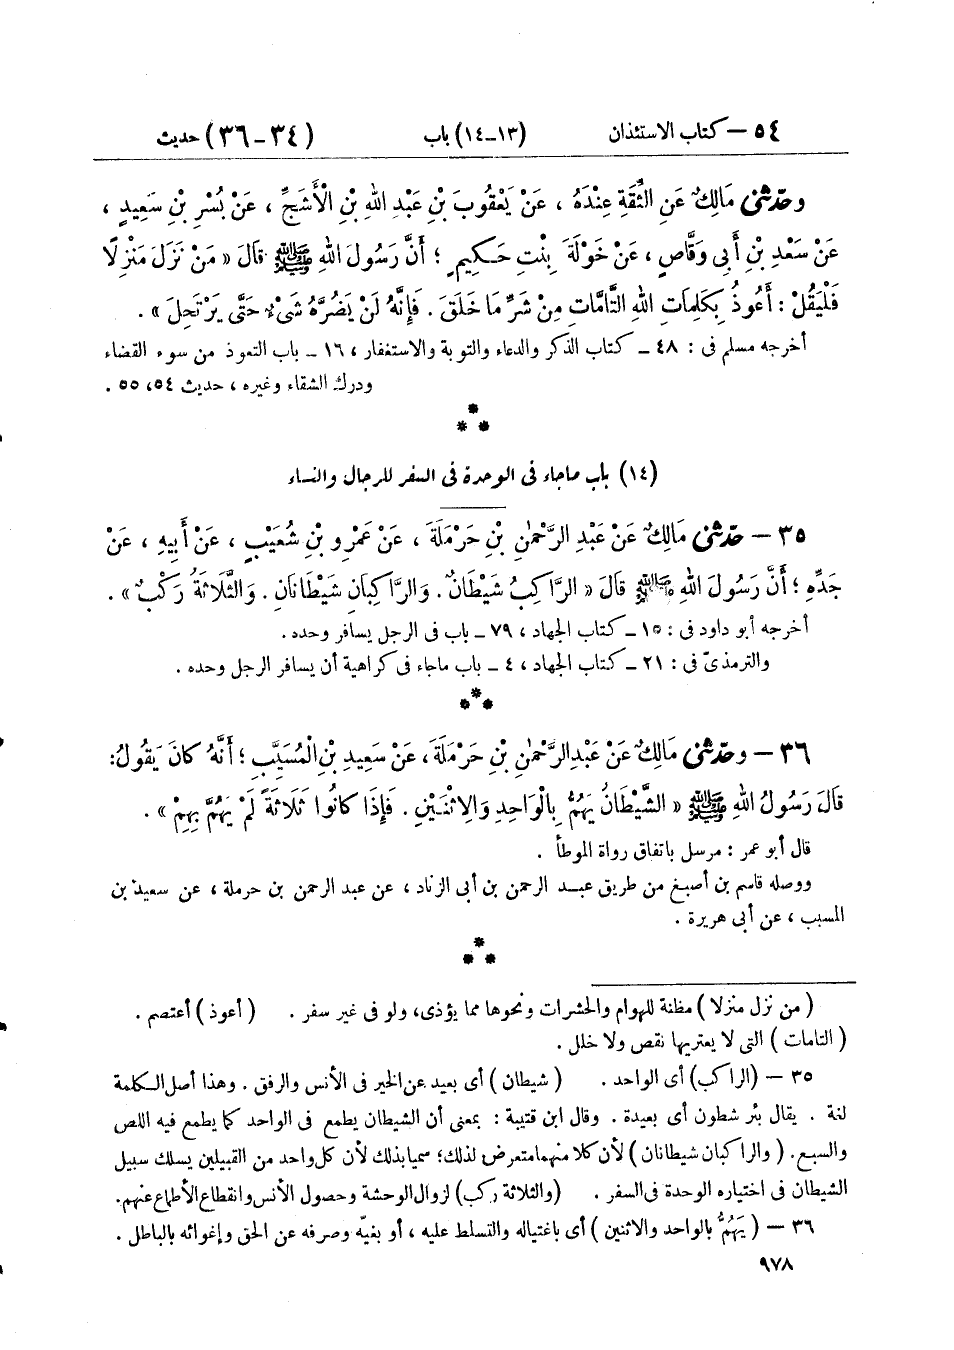 ٥٤ – كتاب الاستئذان (١٣–١٤) باب (٣٤–٣٦) حديث
وحَدَّثَنِي مَالِكٌ عَنِ الثِّقَةِ عِنْدَهُ ، عَنْ يَعْقُوبَ بْنِ عَبْدِ اللهِ بْنِ الْأَشَجِّ ، عَنْ بُسْرِ بْنِ سَعِيدٍ ،
عَنْ سَعْدِ بْنِ أَبِي وَقَّاصٍ ، عَنْ خَوْلَةَ بِنْتِ حَكِيمٍ ؛ أَنَّ رَسُولَ اللهِ ﷺ قَالَ « مَنْ نَزَلَ مَنْزِلًا
فَلْيَقُلْ : أَعُوذُ بِكَلِمَاتِ اللهِ التَّامَّاتِ مِنْ شَرِّ مَا خَلَقَ . فَإِنَّهُ لَنْ يَضُرَّهُ شَىْءٌ حَتَّى يَرْتَحِلَ » .
أخرجه مسلم فى : ٤٨ – كتاب الذكر والدعاء والتوبة والاستغفار ، ١٦ – باب التعوذ من سوء القضاء
ودرك الشقاء وغيره ، حديث ٥٤، ٥٥ .
(١٤) باب ماجاء فى الوحدة فى السفر للرجال والنساء
٣٥ – حَدَّثَنِي مَالِكٌ عَنْ عَبْدِ الرَّحْمٰنِ بْنِ حَرْمَلَةَ ، عَنْ عَمْرِو بْنِ شُعَيْبٍ ، عَنْ أَبِيهِ ، عَنْ
جَدِّهِ ؛ أَنَّ رَسُولَ اللهِ ﷺ قَالَ « الرَّاكِبُ شَيْطَانٌ . وَالرَّاكِبَانِ شَيْطَانَانِ . وَالثَّلَاثَةُ رَكْبٌ » .
أخرجه أبو داود فى : ١٥ – كتاب الجهاد ، ٧٩ – باب فى الرجل يسافر وحده .
والترمذىّ فى : ٢١ – كتاب الجهاد ، ٤ – باب ماجاء فى كراهية أن يسافر الرجل وحده .
٣٦ – وحَدَّثَنِي مَالِكٌ عَنْ عَبْدِ الرَّحْمٰنِ بْنِ حَرْمَلَةَ ، عَنْ سَعِيدِ بْنِ الْمُسَيَّبِ ؛ أَنَّهُ كَانَ يَقُولُ :
قَالَ رَسُولُ اللهِ ﷺ « الشَّيْطَانُ يَهُمُّ بِالْوَاحِدِ وَالِاثْنَيْنِ . فَإِذَا كَانُوا ثَلَاثَةً لَمْ يَهُمَّ بِهِمْ » .
قال أبو عمر : مرسل باتفاق رواة الموطأ .
ووصله قاسم بن أصبغ من طريق عبد الرحمن بن أبى الزناد ، عن عبد الرحمن بن حرملة ، عن سعيد بن
المسيب ، عن أبى هريرة .
( من نزل منزلا ) مظنة للهوام والحشرات ونحوها مما يؤذى ، ولو فى غير سفر . ( أعوذ ) أعتصم .
( التامات ) التى لا يعتريها نقص ولا خلل .
٣٥ – (الراكب) أى الواحد . ( شيطان ) أى بعيد عن الخير فى الأنس والرفق . وهذا أصل الكلمة
لغة . يقال بئر شطون أى بعيدة . وقال ابن قتيبة : بمعنى أن الشيطان يطمع فى الواحد كما يطمع فيه اللص
والسبع . ( والراكبان شيطانان ) لأن كلا منهما متعرض لذلك ؛ سميا بذلك لأن كل واحد من القبيلين يسلك سبيل
الشيطان فى اختياره الوحدة فى السفر . (والثلاثة ركب) لزوال الوحشة وحصول الأنس وانقطاع الأطماع عنهم .
٣٦ – ( يَهُمُّ بالواحد والاثنين ) أى باغتياله والتسلط عليه ، أو بغيّه وصرفه عن الحق وإغوائه بالباطل .
٩٧٨